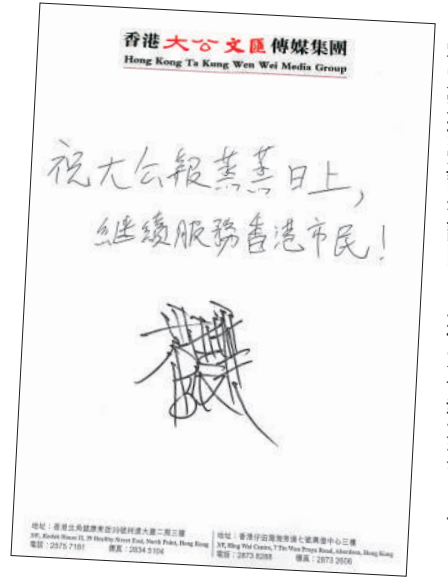 香港大公文匯傳媒集團
Hong Kong Ta Kung Wen Wei Media Group
祝大公報蒸蒸日上，
繼續服務香港市民！
地址：香港北角健康東街39號柯達大廈二期三樓
3/F., Kodak House II, 39 Healthy Street East, North Point, Hong Kong
電話：2575 7181 傳真：2834 5104
地址：香港仔田灣海旁道七號興偉中心三樓
3/F, Hing Wai Centre, 7 Tin Wan Praya Road, Aberdeen, Hong Kong
電話：2873 8288 傳真：2873 2606